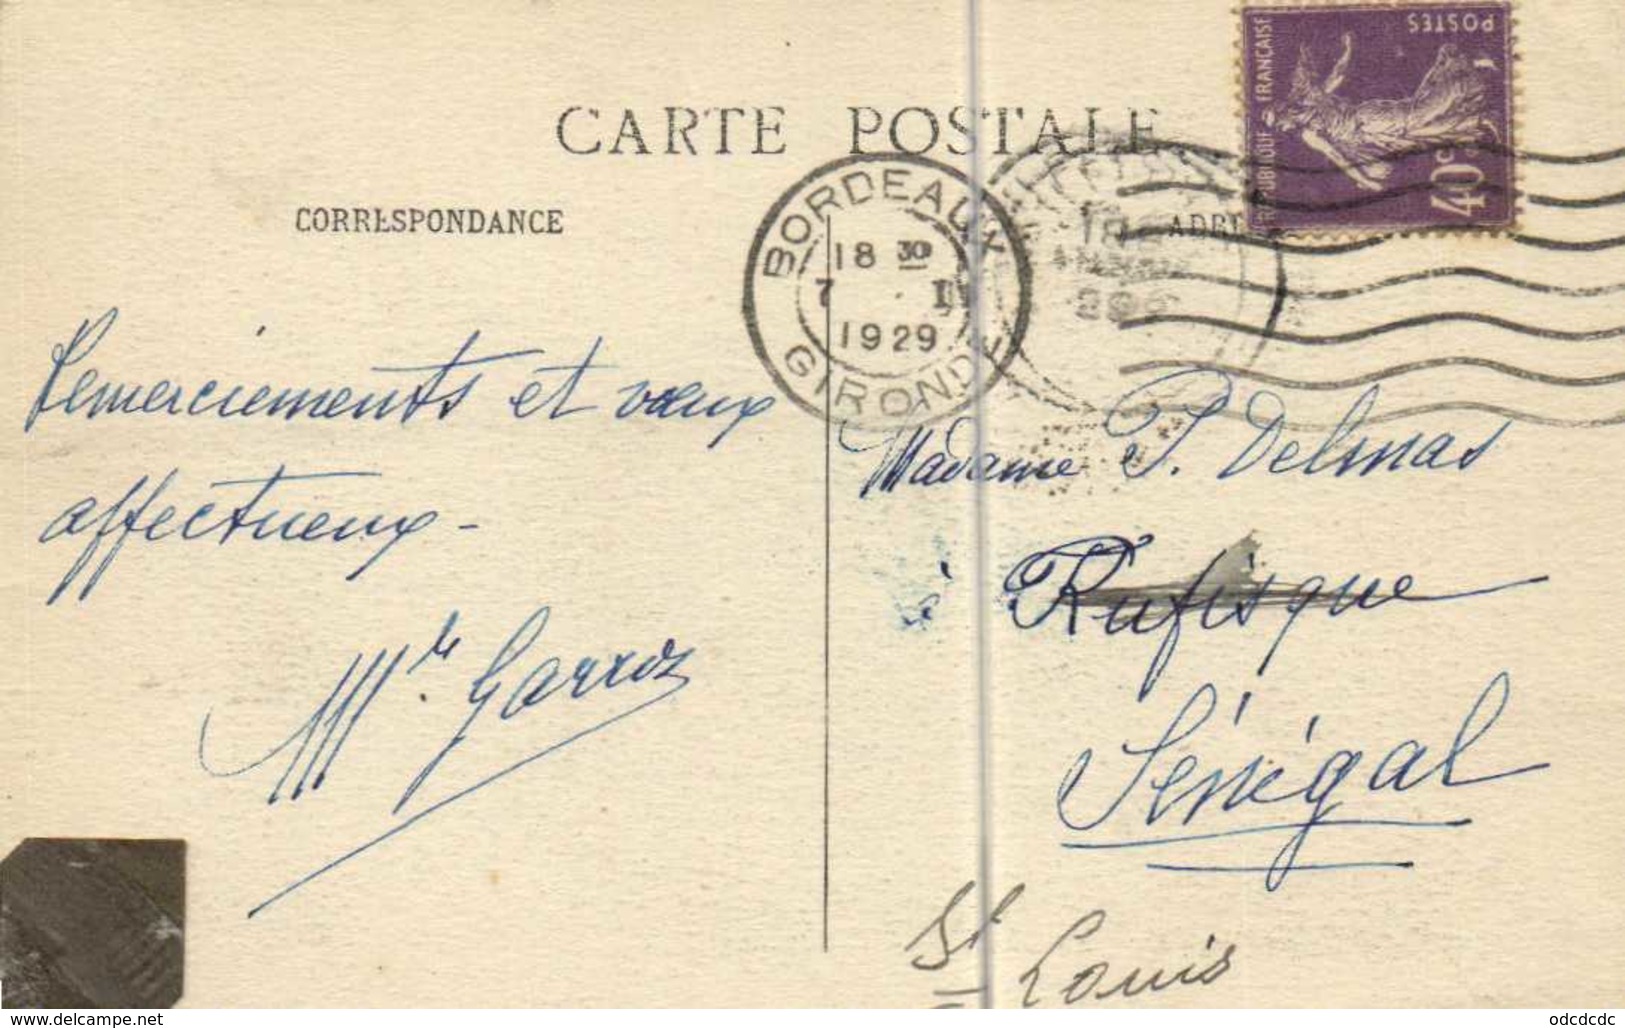 CARTE POSTALE
CORRESPONDANCE
ADRE
RÉPUBLIQUE FRANÇAISE
POSTES
40c
BORDEAUX
18 30
7 I
1929
GIRONDE
Remerciements et vœux
affectueux -
Mle Garros
Madame P. Delmas
à Rufisque
Sénégal
St Louis
www.delcampe.net
odcdcdc